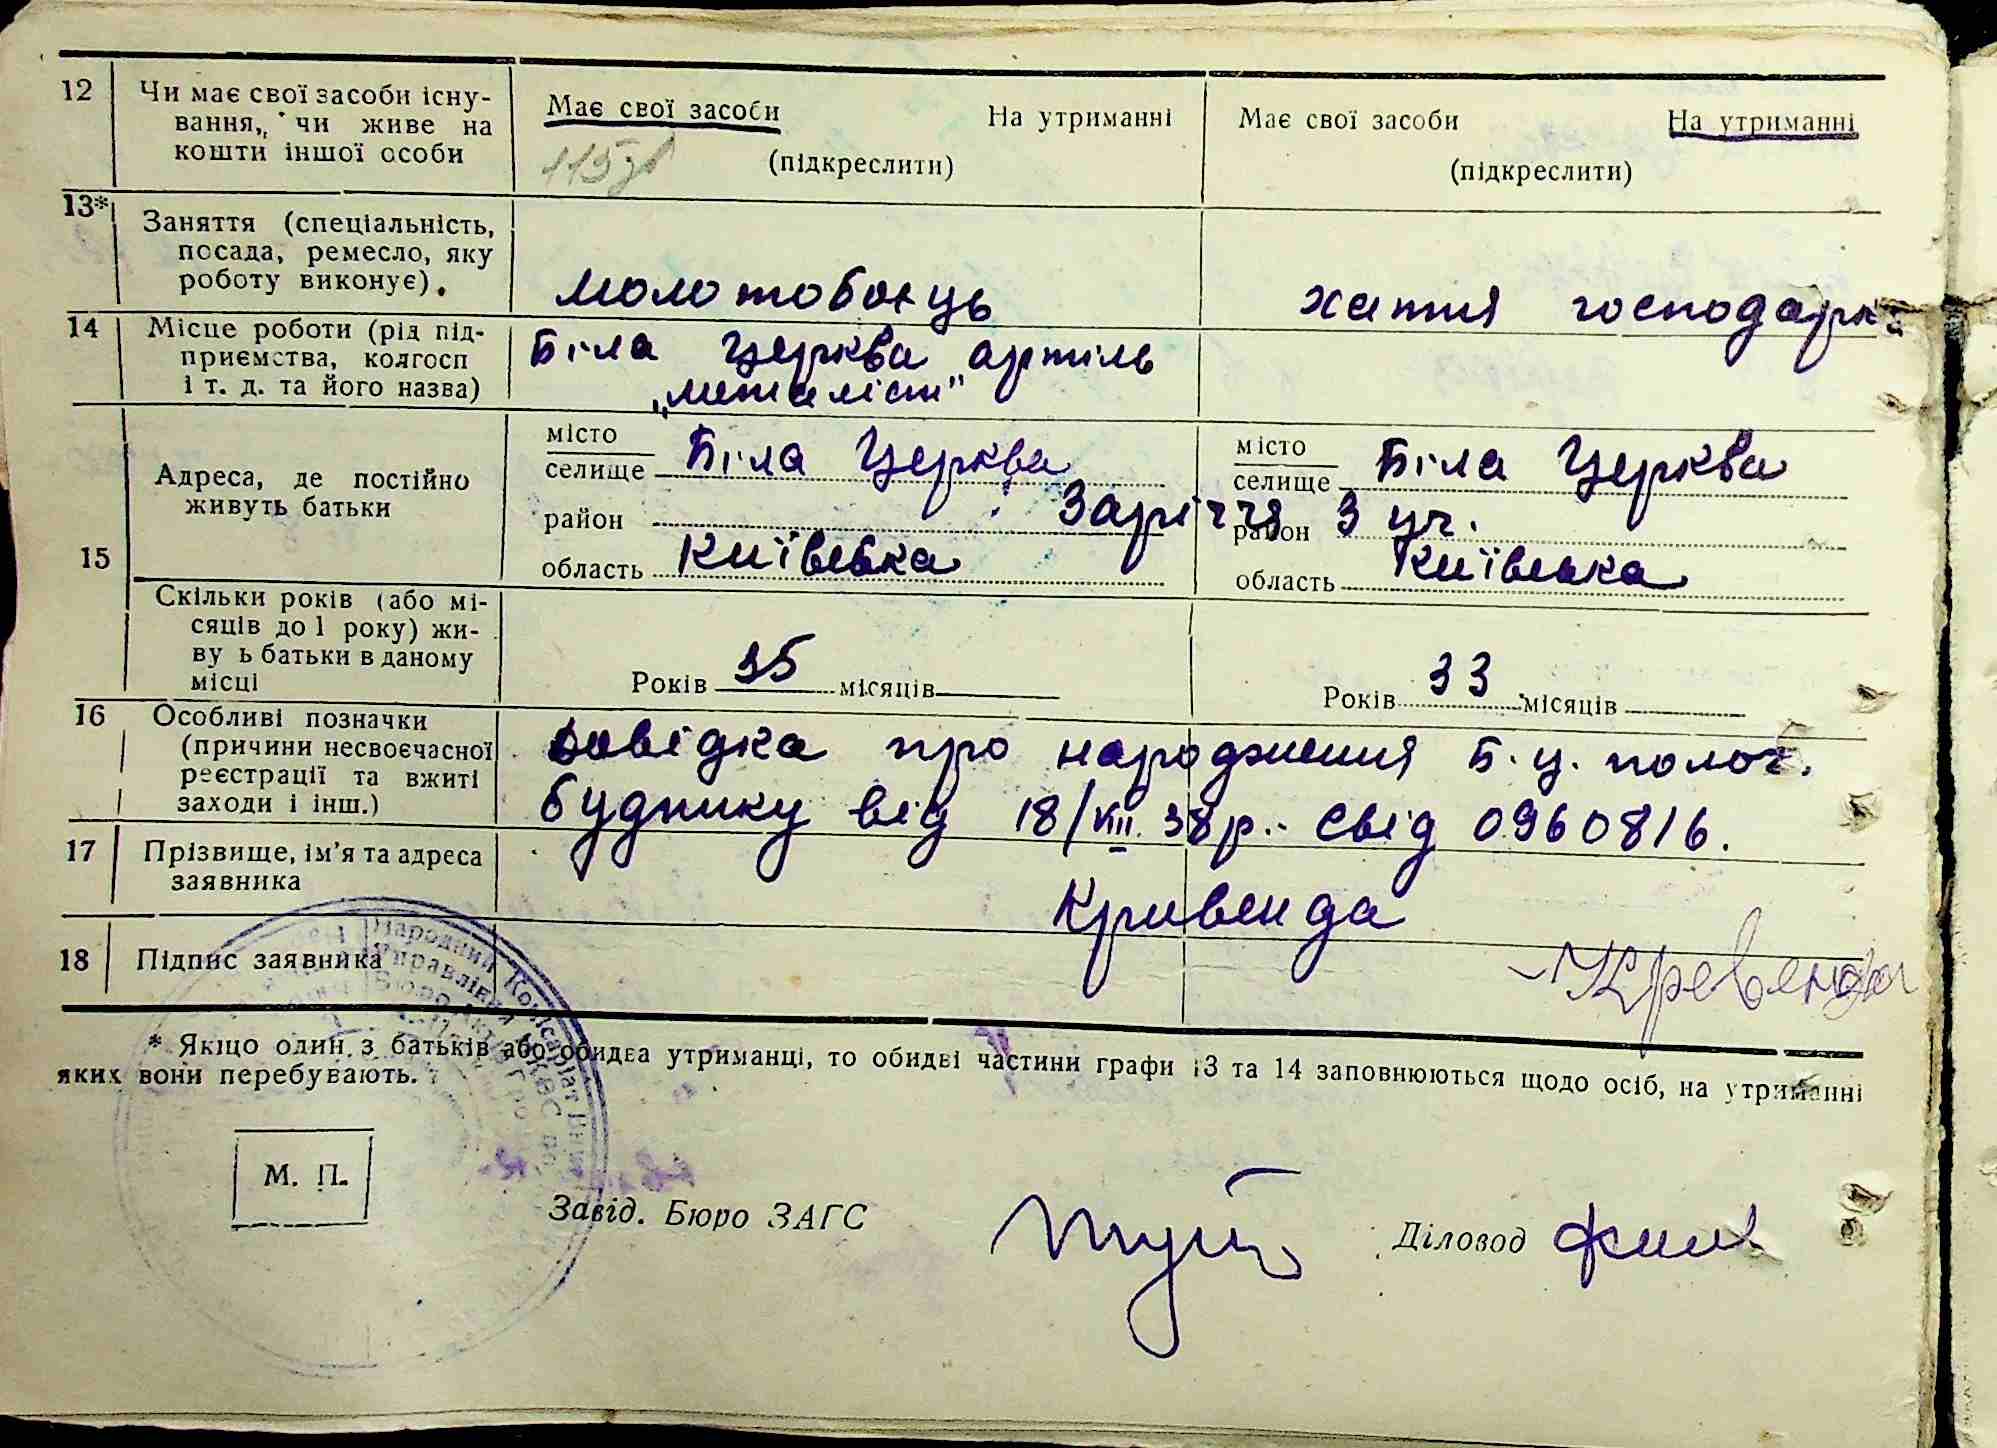 12 Чи має свої засоби існу- Має свої засоби На утриманні Має свої засоби На утриманні
вання, чи живе на
кошти іншої особи (підкреслити) (підкреслити)
13* Заняття (спеціальність,
посада, ремесло, яку
роботу виконує). молотобоєць хатня господарк.
14 Місце роботи (рід під- Біла Церква артіль
приємства, колгосп „металіст"
і т. д. та його назва)
15 Адреса, де постійно живуть батьки
місто Біла Церква місто Біла Церква
селище селище
район Заріччя 3 уч. район
область Київська область Київська
Скільки років (або мі-
сяців до 1 року) жи-
ву ь батьки в даному
місці Років 35 місяців Років 33 місяців
16 Особливі позначки довідка про народження Б. Ц. полог.
(причини несвоєчасної
реєстрації та вжиті будинку від 18/XII. 38 р. свід 0960816.
заходи і інш.)
17 Прізвище, ім'я та адреса
заявника Кривенда
18 Підпис заявника Кревенда
* Якщо один з батьків або обидва утриманці, то обидві частини графи 13 та 14 заповнюються щодо осіб, на утриманні
яких вони перебувають.
Народний Комісаріат
Управління НКВС
Бюро
М. П.
Завід. Бюро ЗАГС Діловод